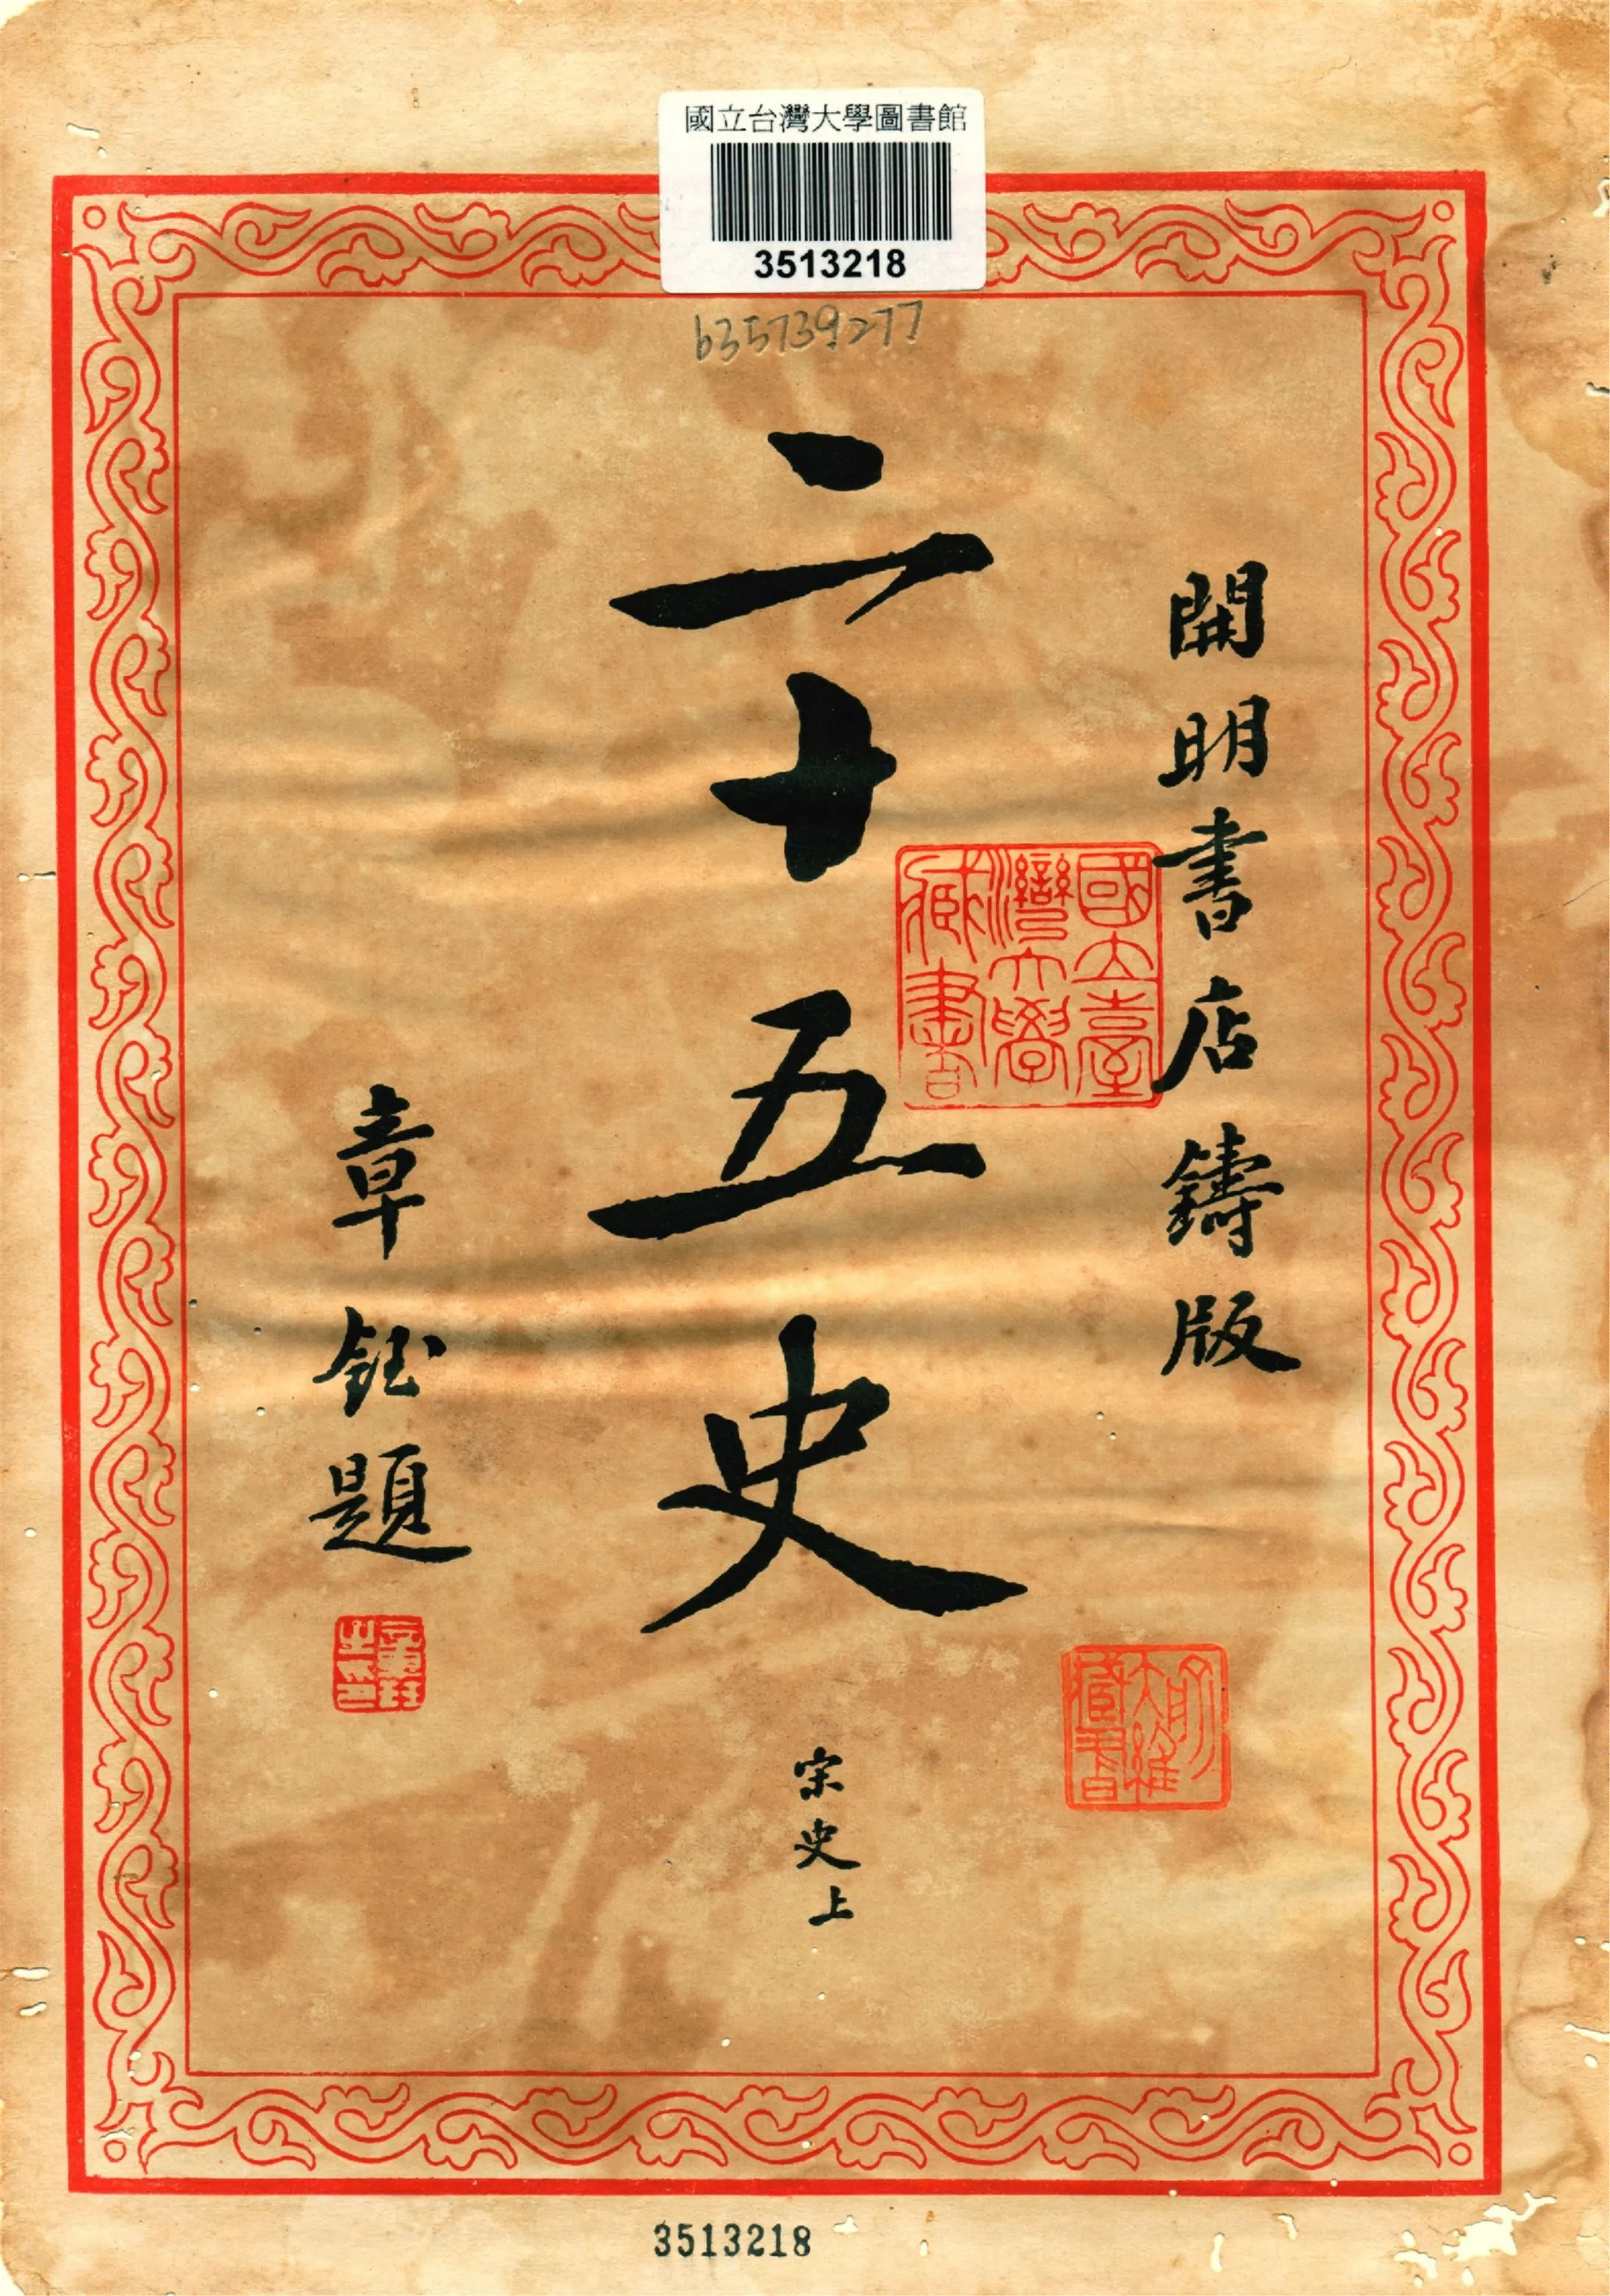 國立台灣大學圖書館
3513218
b35739277
開明書店鑄版
二十五史
宋史上
章鈺題
國立臺灣大學藏書
3513218